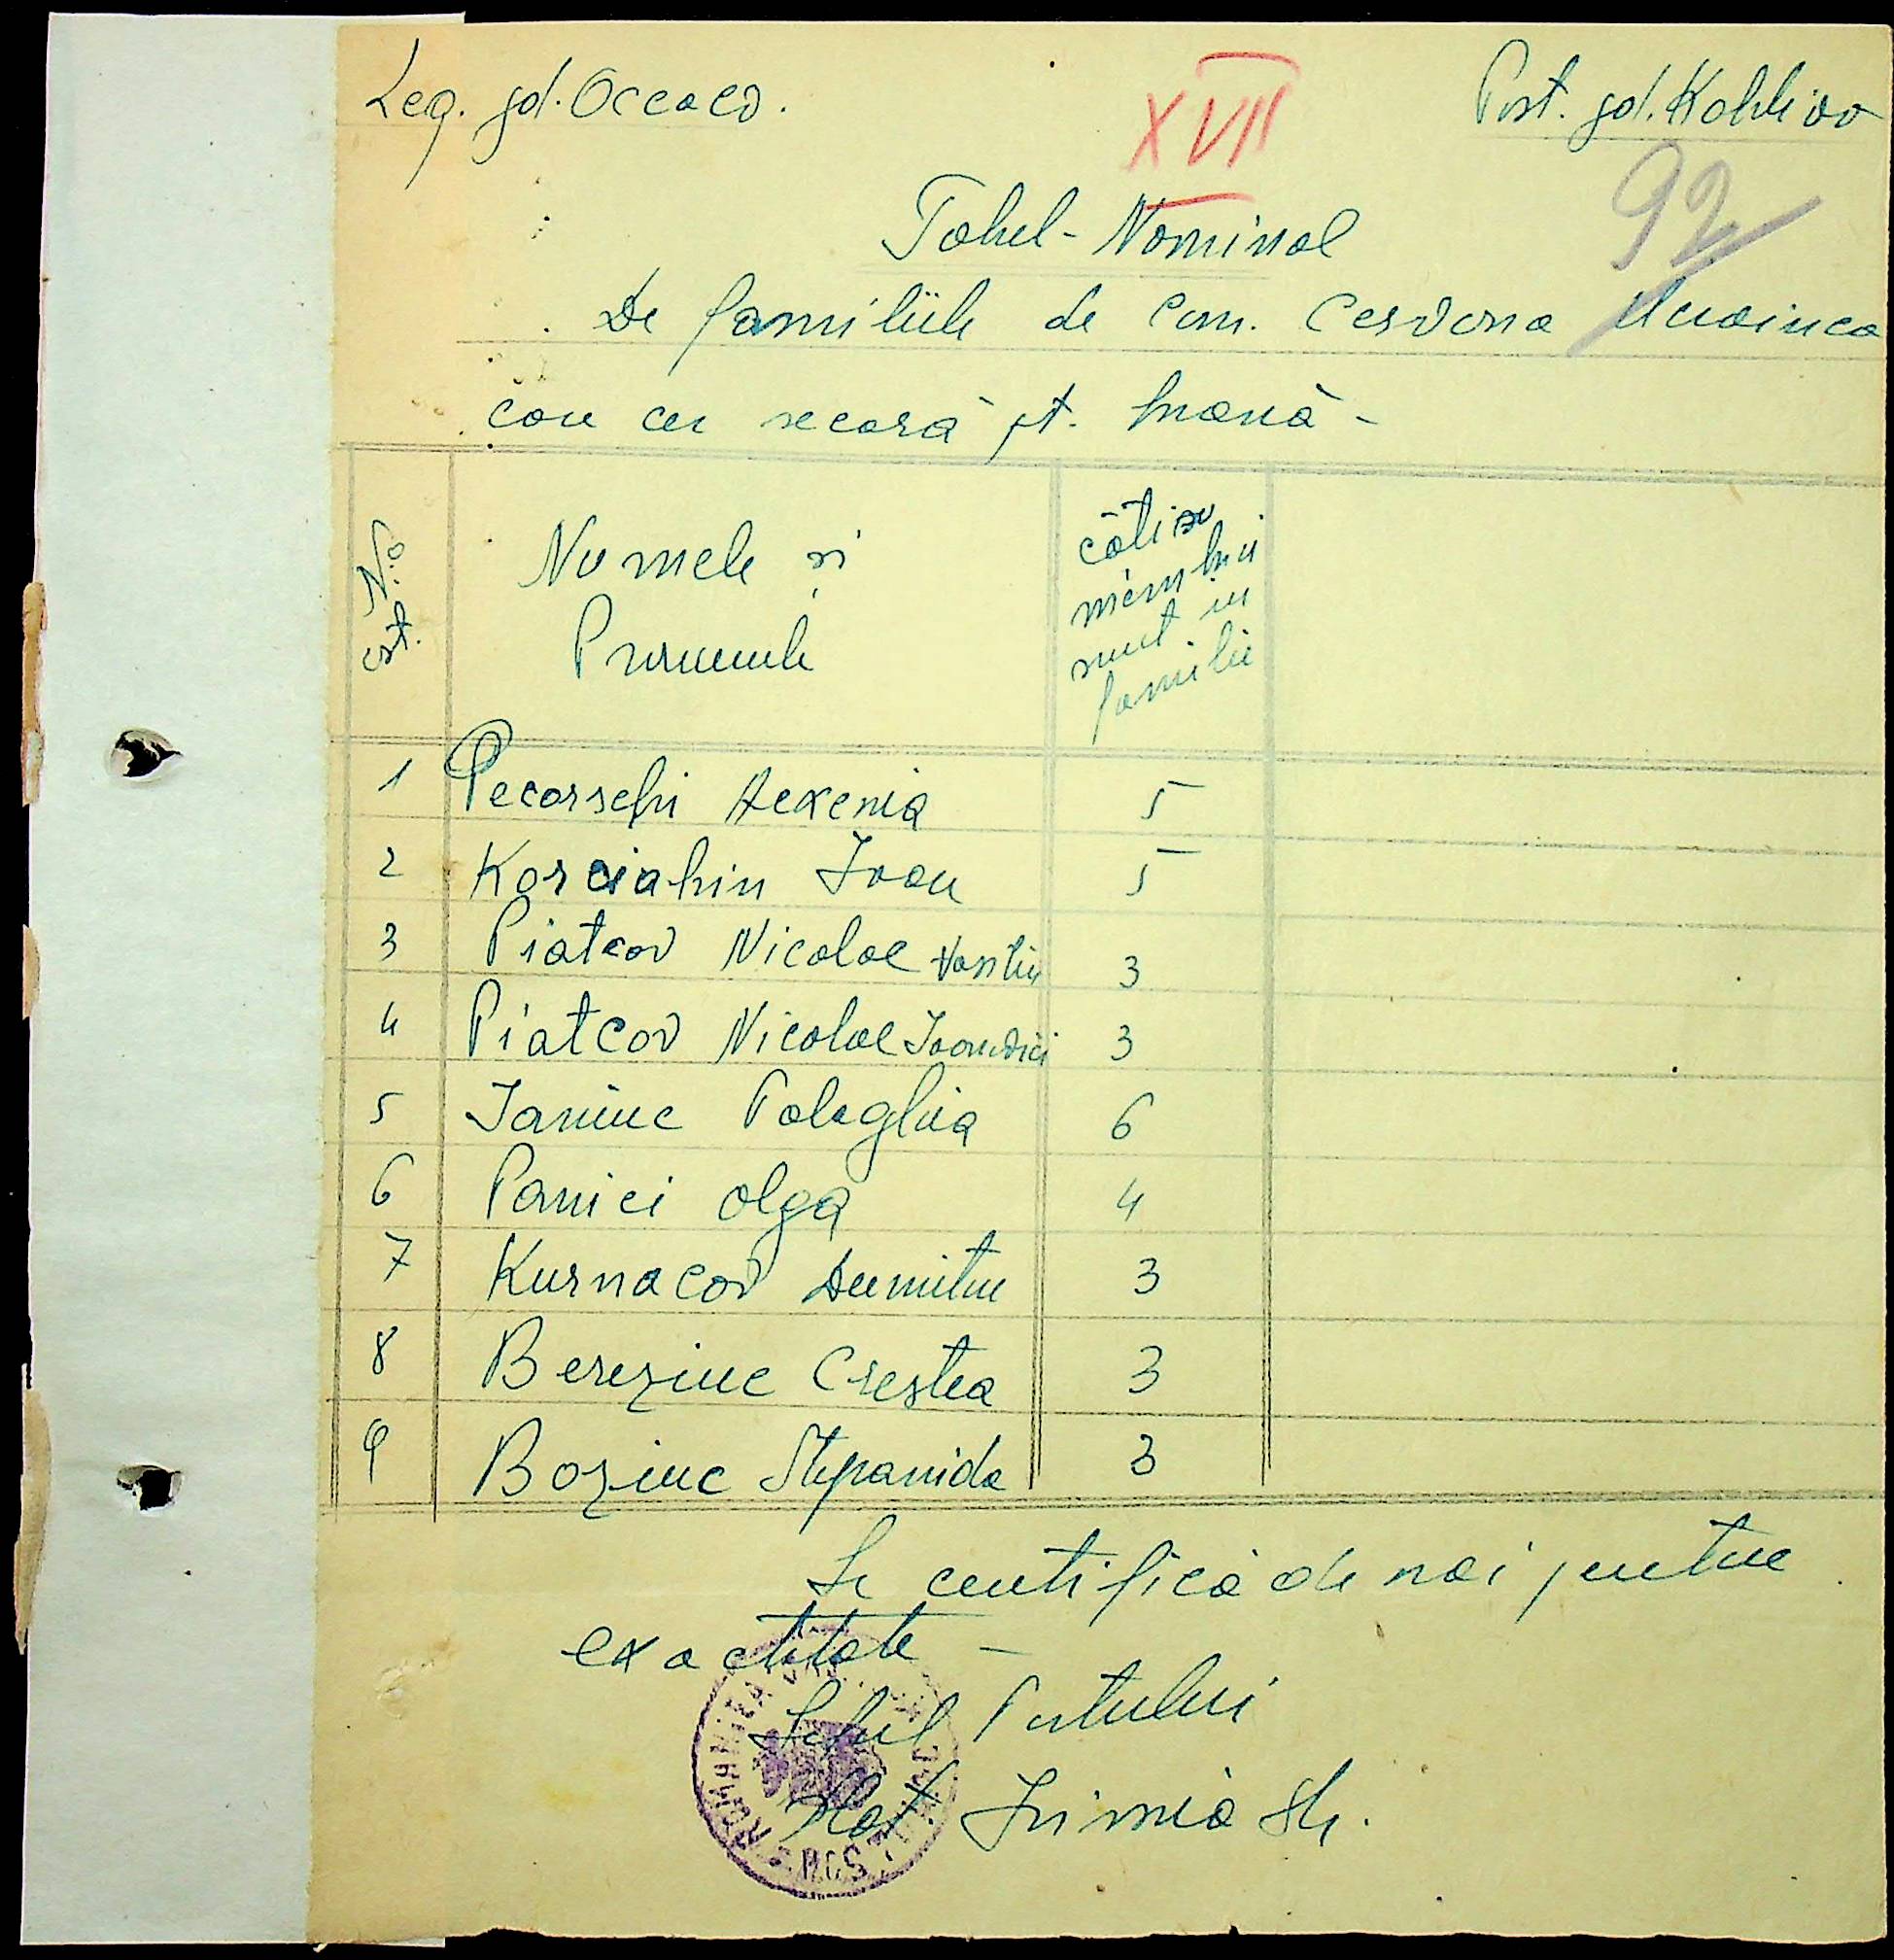 Leg. jd. Oceacov.
XVII
Post. jd. Kobleva
92
Tabel-Nominal
De familiile de Com. Cervona Ucrainca
care cer secară pt. hrană -
No. crt.
Numele și
Pronumele
câți
membrii
sunt in
familie
1 Pecorschi Acxenia 5
2 Korciahin Ivan 5
3 Piatcov Nicolae Vasiliu 3
4 Piatcov Nicolae Ivanovici 3
5 Janiuc Palaghia 6
6 Panici Olga 4
7 Kurnacov Dumitru 3
8 Bereziuc Crestea 3
9 Boziuc Stepanida 3
Se certifică de noi pentru
exactitate -
Șeful Postului
Plot. Irimia St.
ROMANIA